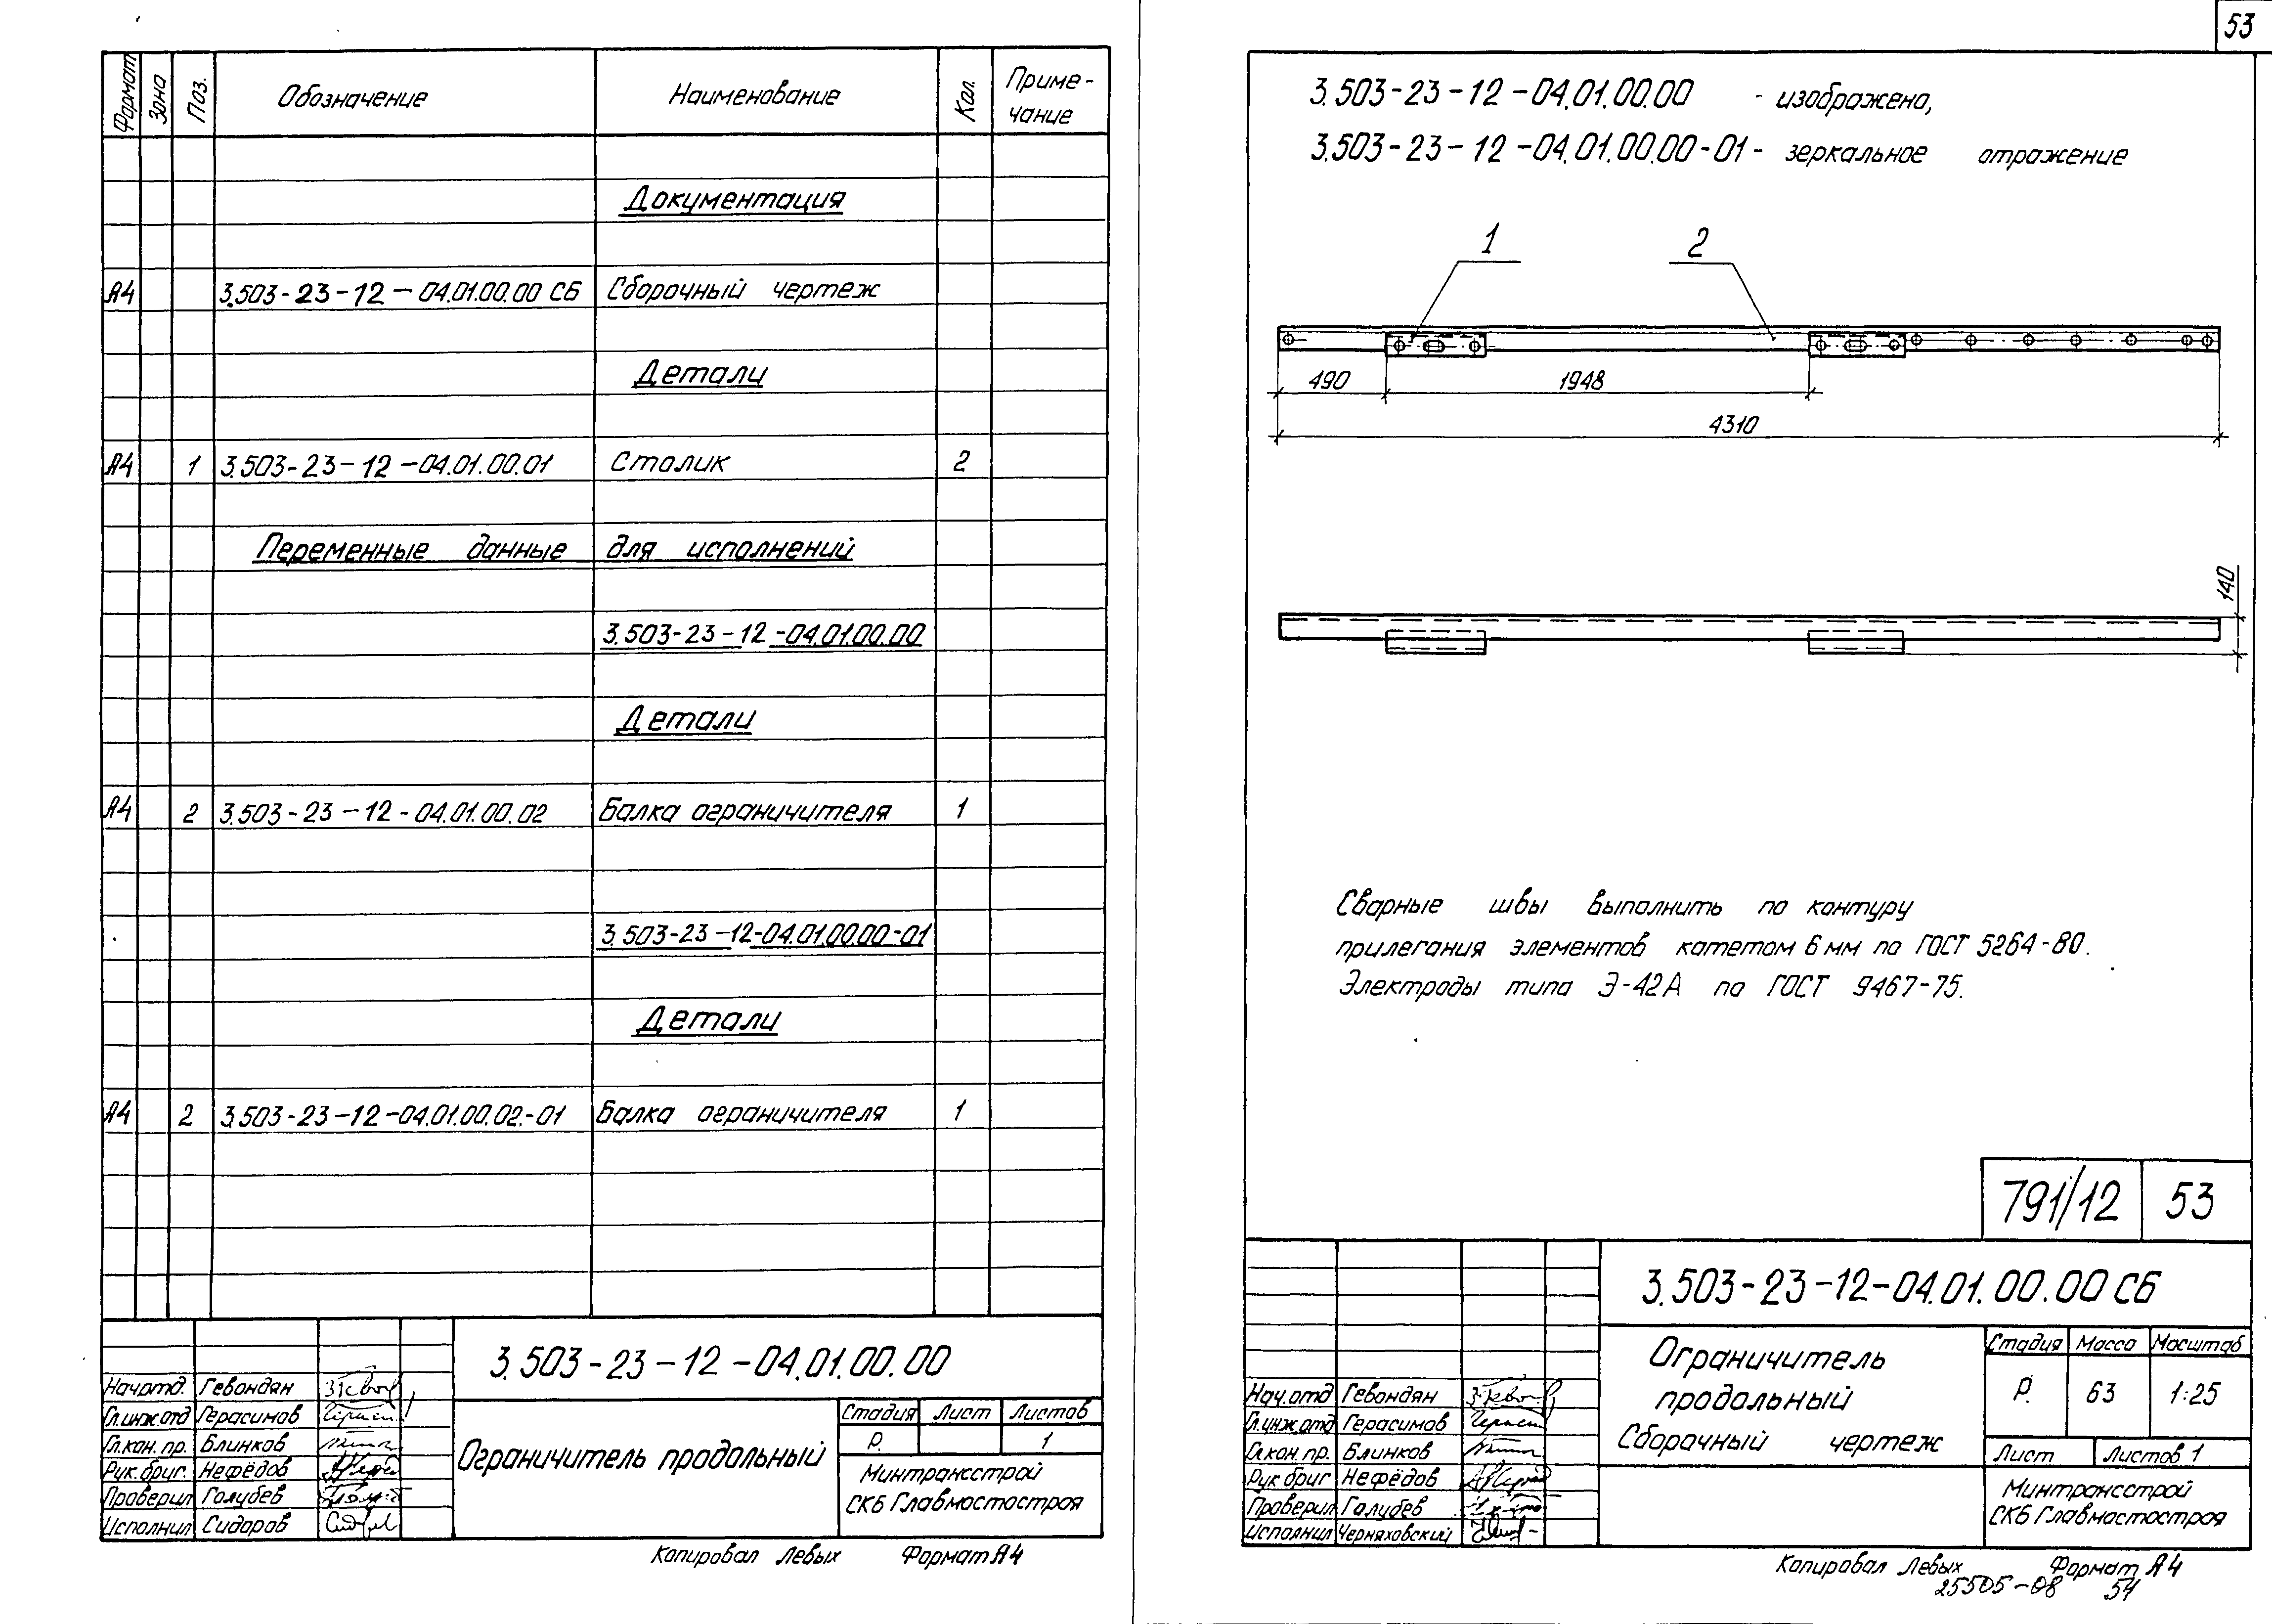 Формат Зона Поз. Обозначение Наименование Кол. Приме-
чание
Документация
А4 3.503-23-12-04.01.00.00 СБ Сборочный чертеж
Детали
А4 1 3.503-23-12-04.01.00.01 Столик 2
Переменные данные для исполнений
3.503-23-12-04.01.00.00
Детали
А4 2 3.503-23-12-04.01.00.02 Балка ограничителя 1
3.503-23-12-04.01.00.00-01
Детали
А4 2 3.503-23-12-04.01.00.02-01 Балка ограничителя 1
3.503-23-12-04.01.00.00
Нач.отд. Гевондян
Гл.инж.отд Герасимов
Гл.кон.пр. Блинков
Рук.бриг. Нефёдов
Проверил Голубев
Исполнил Сидоров
Ограничитель продольный
Стадия Лист Листов
Р. 1
Минтрансстрой
СКБ Главмостостроя
Копировал Левых Формат А4
53
3.503-23-12-04.01.00.00 - изображено,
3.503-23-12-04.01.00.00-01- зеркальное отражение
1 2
490 1948
4310
140
Сварные швы выполнить по контуру
прилегания элементов катетом 6 мм по ГОСТ 5264-80.
Электроды типа Э-42А по ГОСТ 9467-75.
791/12 53
3.503-23-12-04.01.00.00 СБ
Нач.отд Гевондян
Гл.инж.отд Герасимов
Гл.кон.пр. Блинков
Рук.бриг Нефёдов
Проверил Голубев
Исполнил Черняховский
Ограничитель
продольный
Сборочный чертеж
Стадия Масса Масштаб
Р. 63 1:25
Лист Листов 1
Минтрансстрой
СКБ Главмостостроя
Копировал Левых Формат А4
25505-08 54